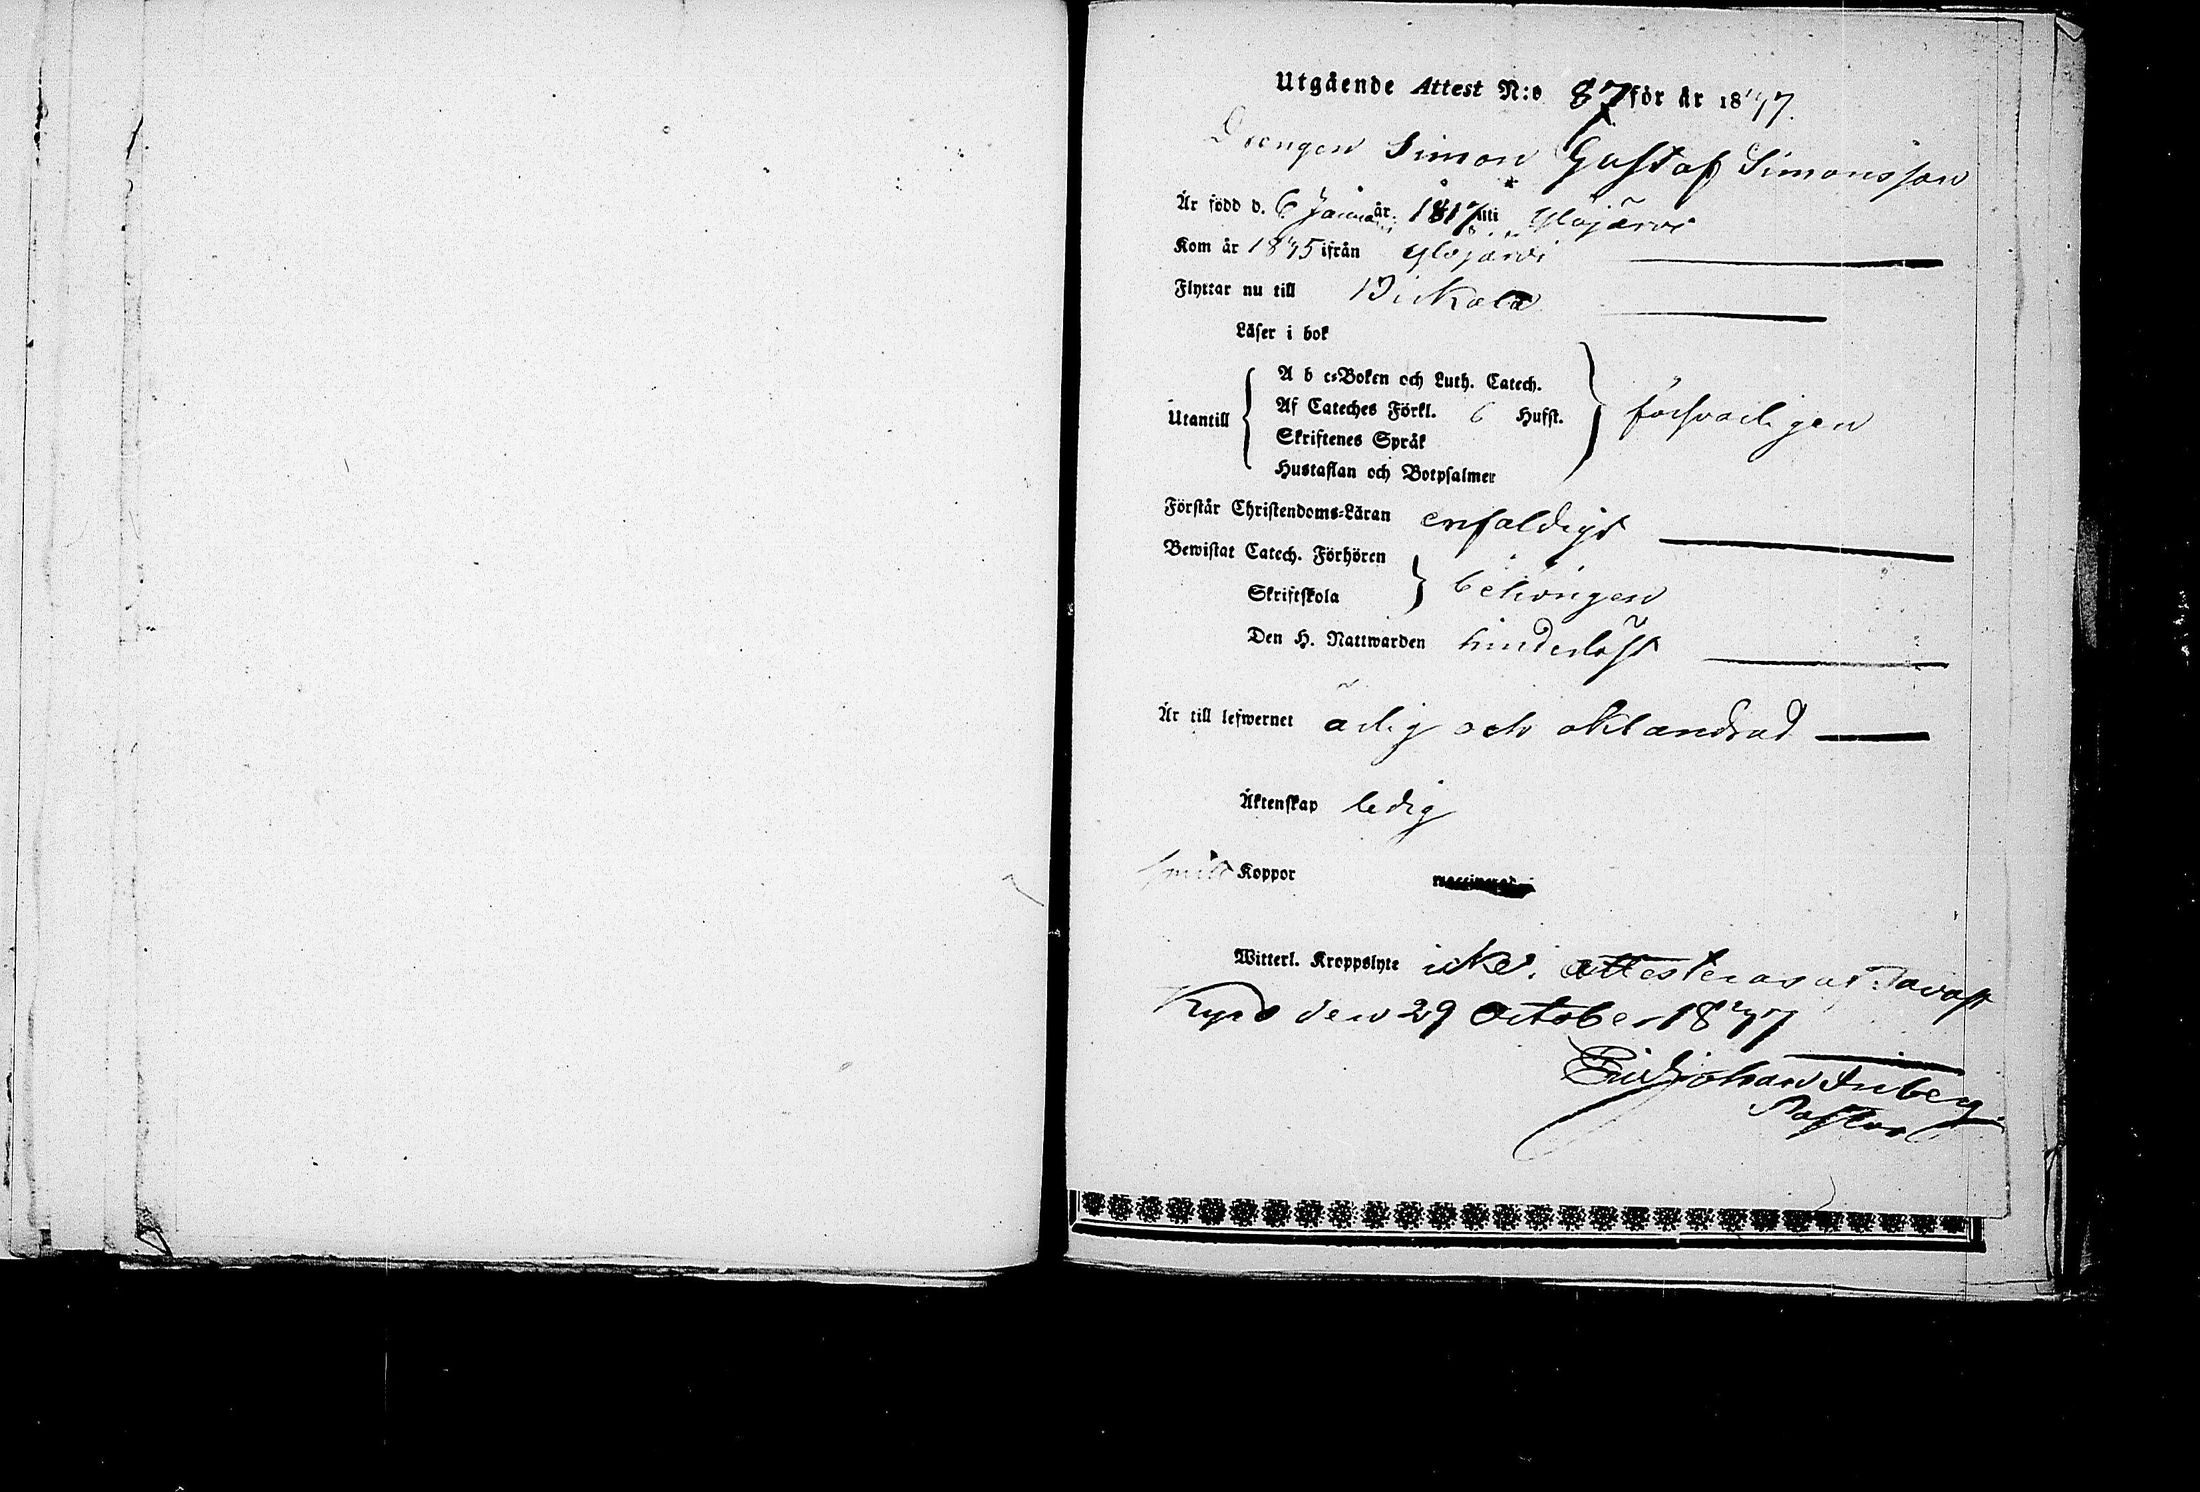 Utgående Attest N:o 87 för år 1847.
Drengen Simon Gustaf Simonsson
Är född d. 6 Januari år 1817 uti Ylöjärvi
Kom år 1845 ifrån Ylöjärvi
Flyttar nu till Birkala
Läser i bok
A b c-Boken och Luth. Catech.
Utantill Af Cateches Förkl. 6 Hufst. försvarligen
Skriftenes Språk
Hustaflan och Botpsalmer
Förstår Christendoms-Läran enfaldigt
Bewistat Catech. Förhören
Skriftskola behörigen
Den H. Nattwarden hinderlöst
Är till lefwernet ärlig och oklandrad
Äktenskap ledig
Koppor vaccinerad
Witterl. Kroppslyte icke; attesteras af Tavast
Kyro den 29 October 1847
Johan
Pastor